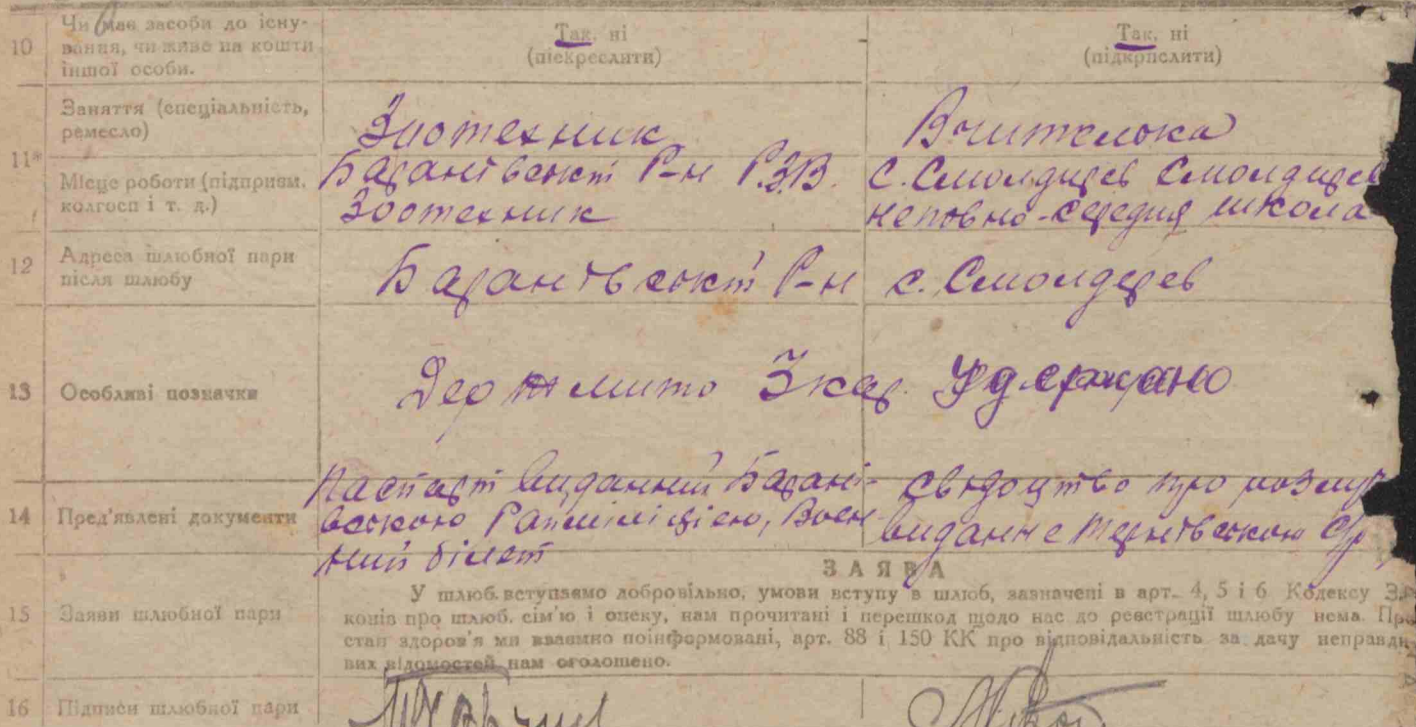 10 Чи має засоби до існу-
вання, чи живе на кошти
іншої особи.
Так, ні
(піекреслити)
Так, ні
(підкрпслити)
11*
Заняття (спеціальність,
ремесло)
Зоотехник
Вчителька
Місце роботи (підприєм.
колгосп і т. д.)
Баранівський Р-н Р.З.В.
Зоотехник
с. Смолдирев Смолдирев
неповно-середня школа
12 Адреса шлюбної пари
після шлюбу
Баранівський Р-н с. Смолдерев
13 Особливі позначки
Держмито 3 кар. Удержано
14 Пред'явлені документи
Паспарт виданний Барані-
вською Райміліцією, Воен-
ний білет
свідоцтво про
виданне
ЗАЯВА
15 Заяви шлюбної пари
У шлюб вступаємо добровільно, умови вступу в шлюб, зазначені в арт. 4, 5 і 6 Кодексу За
конів про шлюб. сім'ю і опеку, нам прочитані і перешкод щодо нас до реєстрації шлюбу нема. Про
стан здоров'я ми взаємно поінформовані, арт. 88 і 150 КК про відповідальність за дачу неправди
вих відомостей нам оголошено.
16 Підписи шлюбної пари